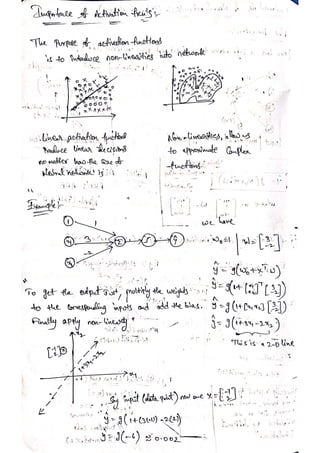 Importance of Activation func's :-
The Purpose of activation functions
is to introduce non-linearities into network
Linear activation functions
Produce linear decisions
no matter how the size of
Neural network is
Non-linearities, allow us
to approximate Complex
functions.
Example :-
we have
1
1
x₁
3
x₂
-2
Σ
∫
ŷ
w₀ = 1 W = [3 -2]
ŷ = g(w₀ + xᵀw)
ŷ = g(1 + [x₁ x₂]ᵀ [3 -2])
ŷ = g(1 + [x₁ x₂] [3 -2])
ŷ = g(1 + 3x₁ - 2x₂)
This is a 2-D line
"To get the output out, multiply the weights
to the corresponding inputs and add the bias.
Finally apply non-linearity"
x₂
[-1 2]
x₁
1+3x₁-2x₂
Say input (data point) now are x = [-1 2]
ŷ = g(1 + (3×-1) - 2(2))
ŷ = g(-6) ≈ 0.002